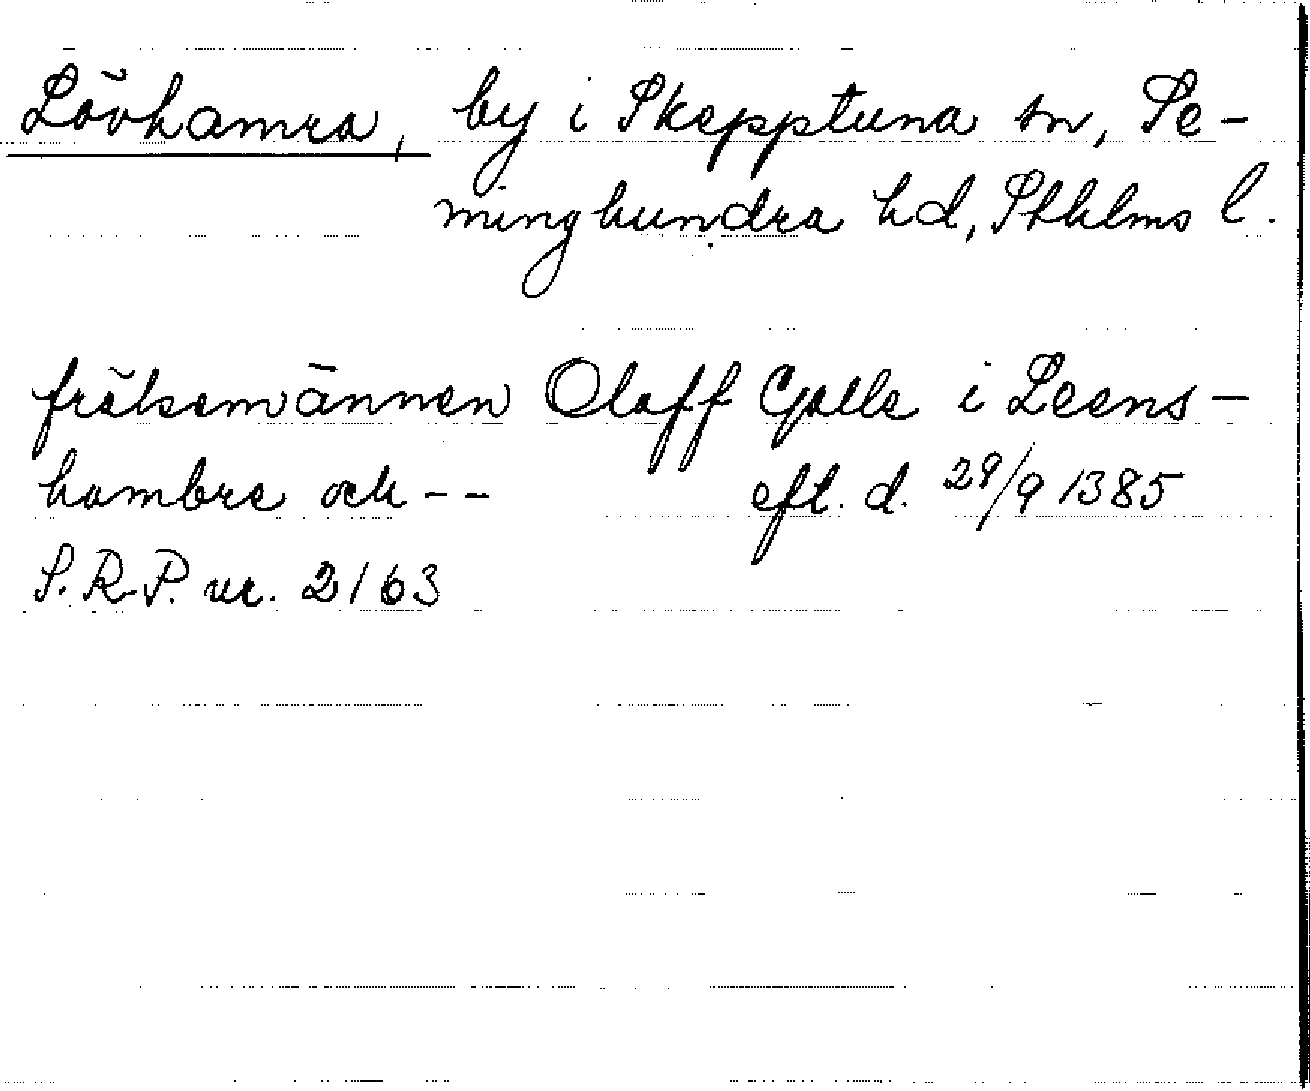 Lövhamra, by i Skepptuna sn, Se-
minghundra hd, Sthlms l.
frälsemännen Olaff Galle i Leens-
hambre och --  eft. d. 29/9 1385
S.R.P. nr. 2163